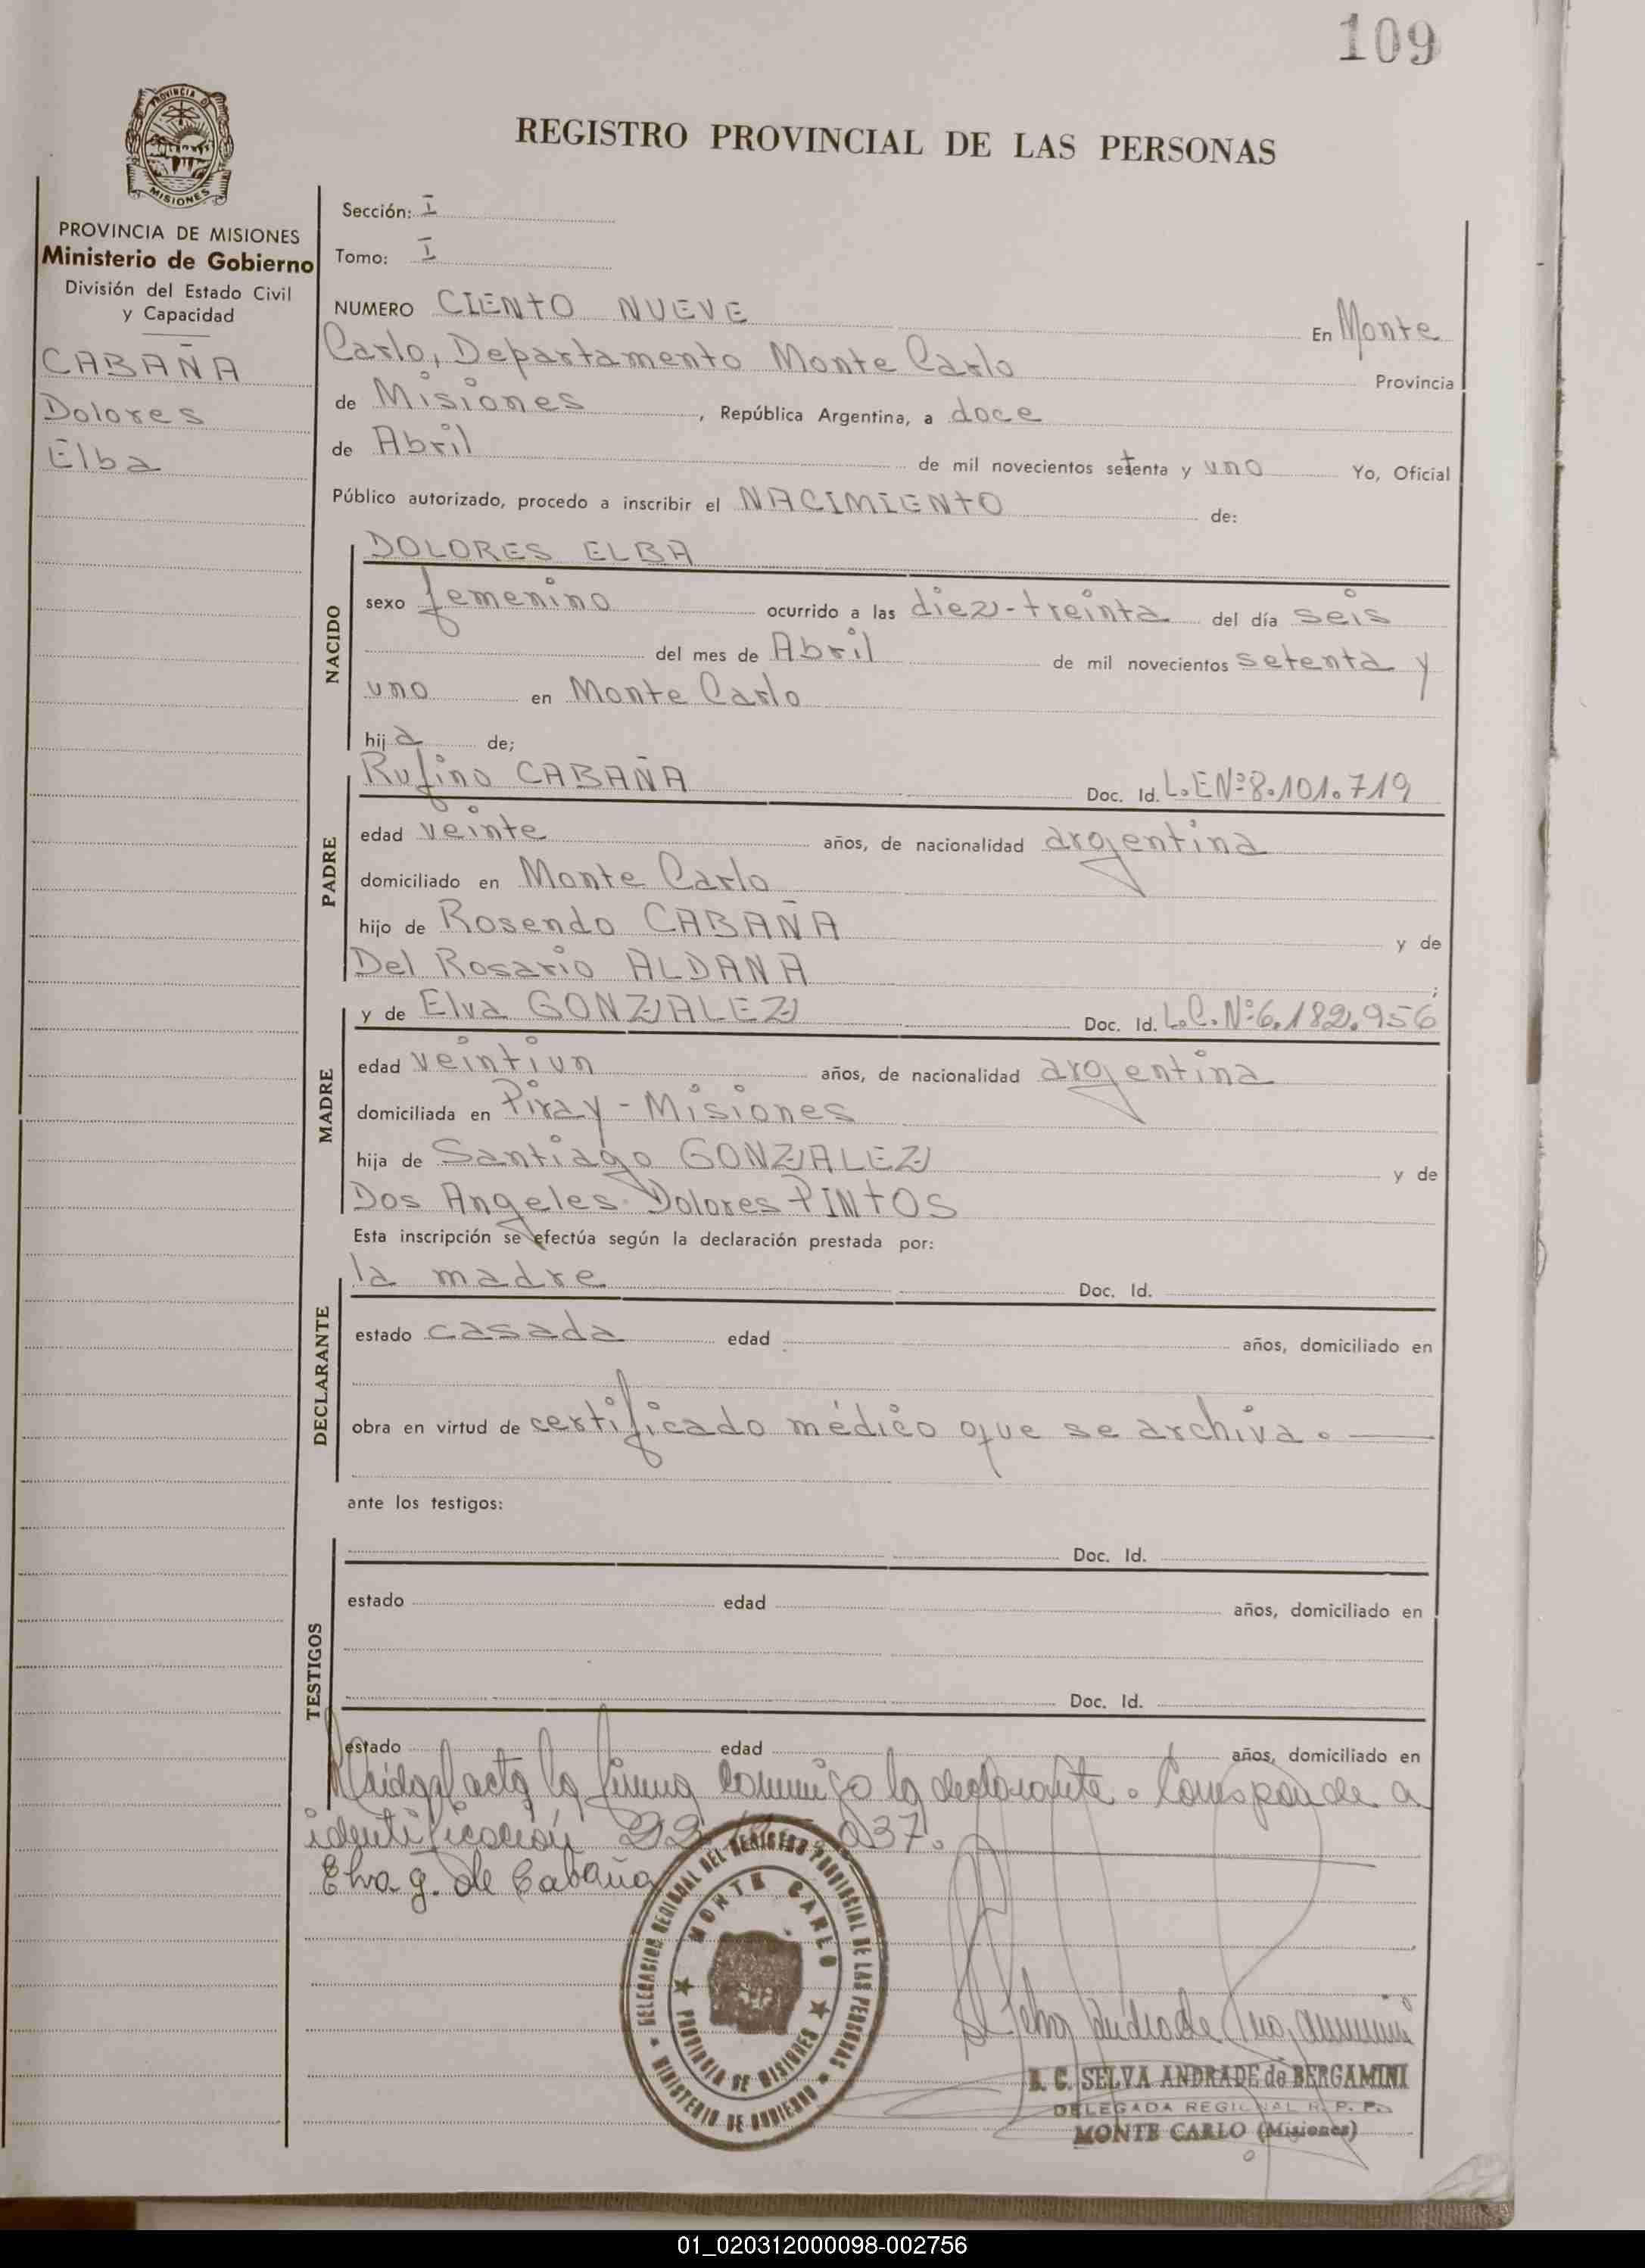 109
PROVINCIA DE
MISIONES
REGISTRO PROVINCIAL DE LAS PERSONAS
PROVINCIA DE MISIONES
Ministerio de Gobierno
División del Estado Civil
y Capacidad
CABAÑA
Dolores
Elba
Sección: I
Tomo: I
NUMERO CIENTO NUEVE En Monte
Carlo, Departamento Monte Carlo Provincia
de Misiones, República Argentina, a doce
de Abril de mil novecientos setenta y uno Yo, Oficial
Público autorizado, procedo a inscribir el NACIMIENTO de:
NACIDO
DOLORES ELBA
sexo femenino ocurrido a las diez-treinta del día seis
del mes de Abril de mil novecientos setenta y
uno en Monte Carlo
hija de;
PADRE
Rufino CABAÑA Doc. Id. L.E Nº 8.101.719
edad veinte años, de nacionalidad argentina
domiciliado en Monte Carlo
hijo de Rosendo CABAÑA y de
Del Rosario ALDANA ;
MADRE
y de Elva GONZALEZ Doc. Id. L.C. Nº 6.182.956
edad veintiun años, de nacionalidad argentina
domiciliada en Piray - Misiones
hija de Santiago GONZALEZ y de
Dos Angeles Dolores PINTOS
Esta inscripción se efectúa según la declaración prestada por:
DECLARANTE
la madre Doc. Id.
estado casada edad años, domiciliado en
obra en virtud de certificado médico que se archiva.
ante los testigos:
TESTIGOS
Doc. Id.
estado edad años, domiciliado en
Doc. Id.
estado edad años, domiciliado en
acta la firma conmigo la declarante. Corresponde a
identificación 037.
Elva g. de Cabaña
DELEGACION REGIONAL DEL REGISTRO PROVINCIAL DE LAS PERSONAS
MONTE CARLO
PROVINCIA DE MISIONES
MINISTERIO DE GOBIERNO
SELVA ANDRADE de BERGAMINI
DELEGADA REGIONAL R. P. P.
MONTE CARLO (Misiones)
01_020312000098-002756